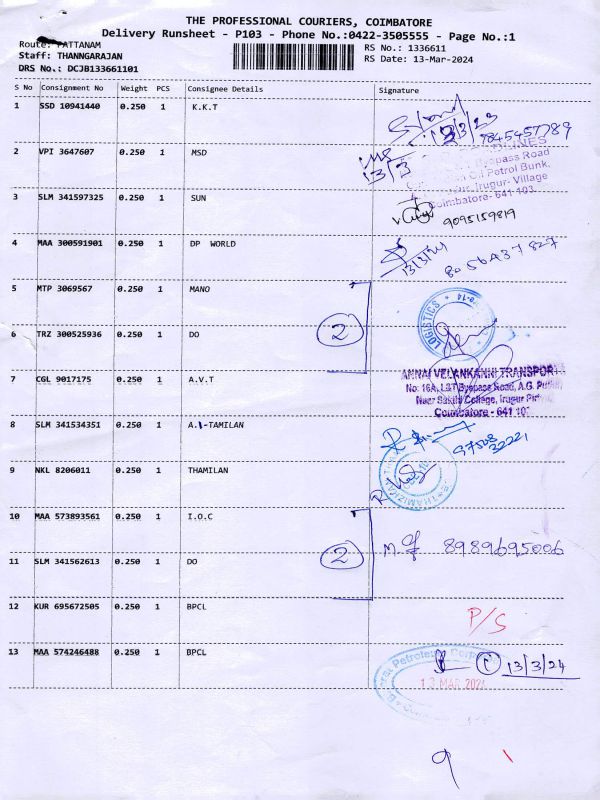 THE PROFESSIONAL COURIERS, COIMBATORE
Delivery Runsheet - P103 - Phone No.:0422-3505555 - Page No.:1
Route: PATTANAM
RS No.: 1336611
Staff: THANNGARAJAN
RS Date: 13-Mar-2024
DRS No.: DCJB133661101
S No Consignment No Weight PCS Consignee Details Signature
1 SSD 10941440 0.250 1 K.K.T
9845457789
2 VPI 3647607 0.250 1 MSD
13/3
Bypass Road
Oil Petrol Bunk,
Irugur- Village
Coimbatore- 641 103
3 SLM 341597325 0.250 1 SUN
9095159819
4 MAA 300591901 0.250 1 DP WORLD
13/3/24 8056437827
5 MTP 3069567 0.250 1 MANO
LOGISTICS
6 TRZ 300525936 0.250 1 DO
2
ANNAI VELANKANNI TRANSPORT
No: 16A, L&T Byepass Road, A.G.
7 CGL 9017175 0.250 1 A.V.T
Near Sakthi College, Irugur
Coimbatore - 641 10
8 SLM 341534351 0.250 1 A.1-TAMILAN
9 NKL 8206011 0.250 1 THAMILAN
10 MAA 573893561 0.250 1 I.O.C
2
8989695006
11 SLM 341562613 0.250 1 DO
12 KUR 695672505 0.250 1 BPCL
P/S
13 MAA 574246488 0.250 1 BPCL
Petroleum
1 13/3/24
13 MAR 2024
9